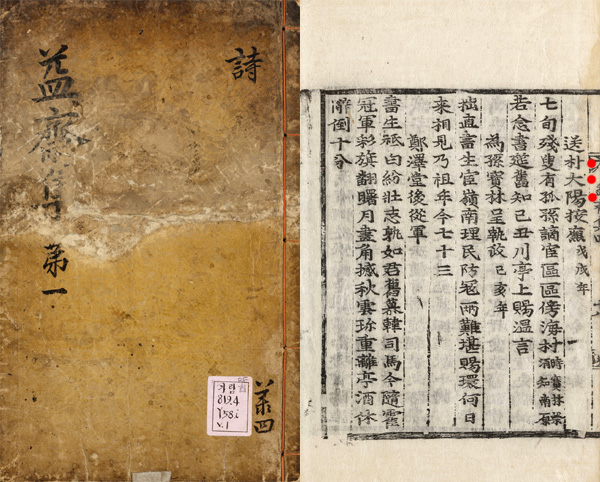 詩
益齋集 第一
四
가람
819.4
Y58i
v.1
送朴大陽按廉 戊戌年
七旬殘叟有孤孫謫宦區區傍海村 時寶林 知南原
若念書筵舊知己丑川亭上賜溫言
為孫寶林呈執政 己亥年
拙直書生宦嶺南理民防寇兩難堪賜環何日
來相見乃祖年今七十三
鄭澤堂後從軍
書生白紛壯志孰如君舊慕韓司馬今隨霍
冠軍彩旗翻曙月畫角撼秋雲珍重離亭酒休
辭倒十分